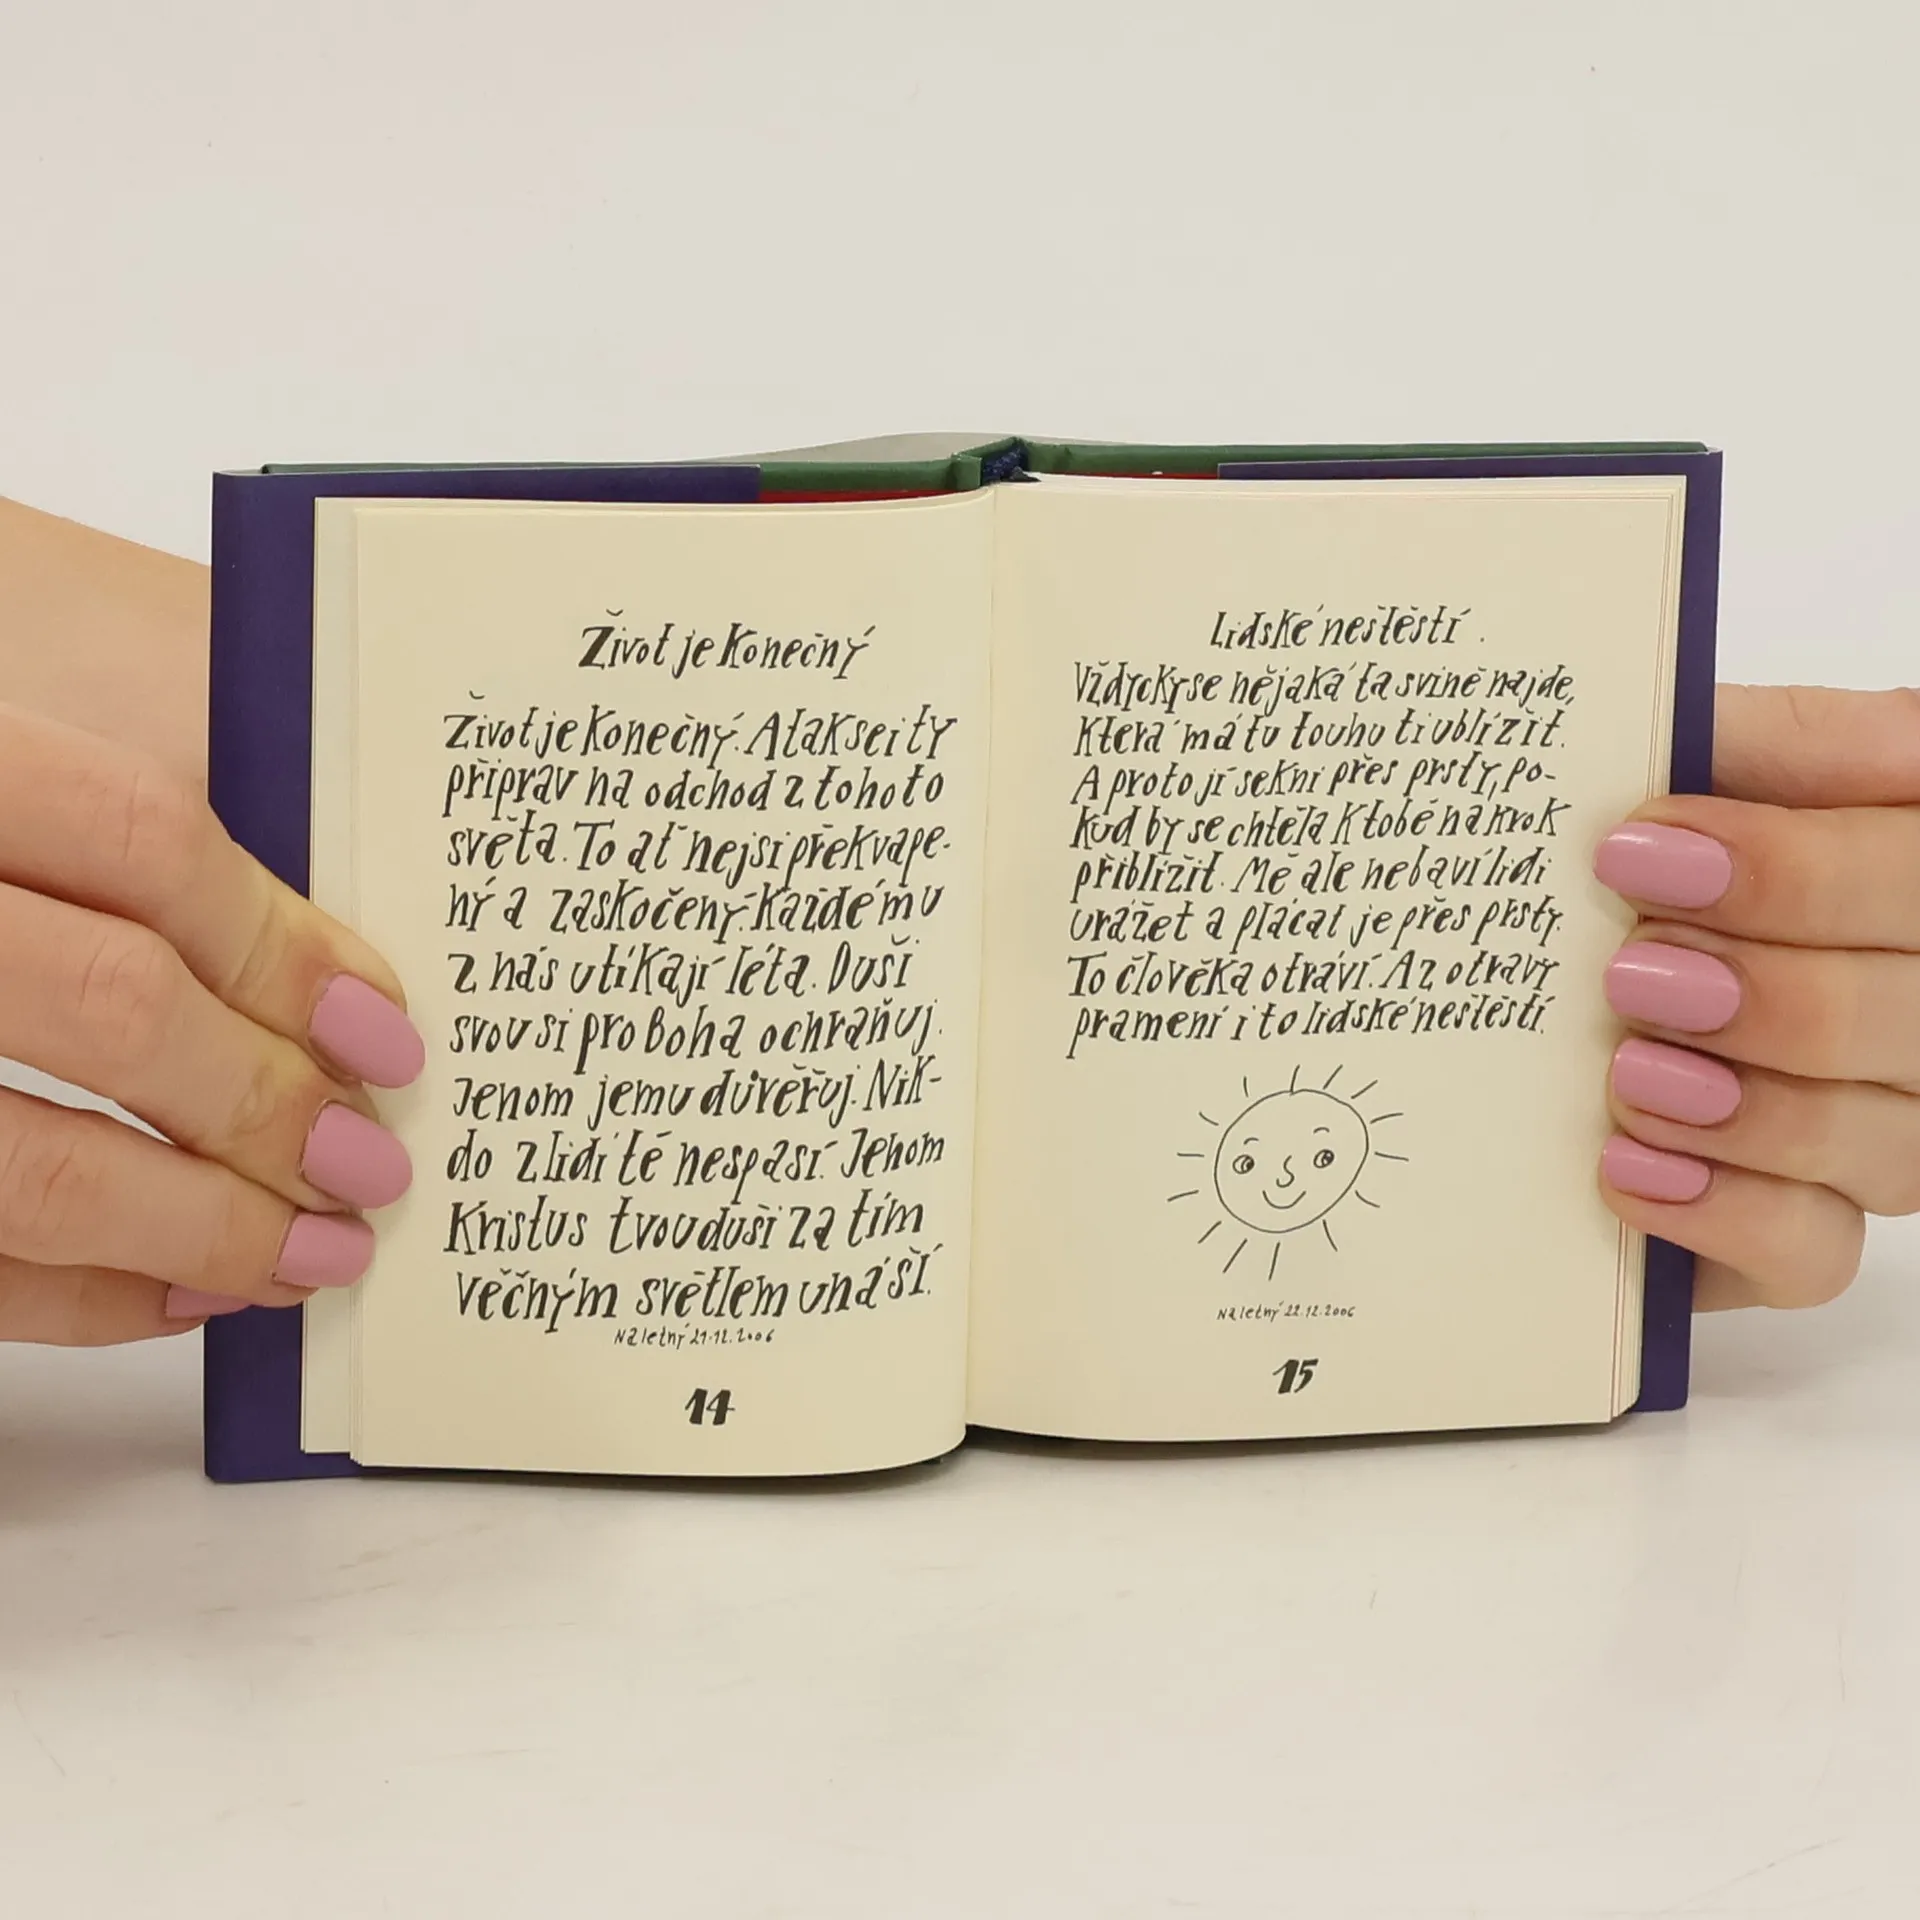 Život je konečný
Život je konečný. A tak se i ty
připrav na odchod z tohoto
světa. To ať nejsi překvape-
ný a zaskočený. Každému
z nás utíkají léta. Duši
svou si pro Boha ochraňuj.
Jenom jemu důvěřuj. Nik-
do z lidí tě nespasí. Jenom
Kristus tvou duši za tím
věčným světlem unáší.
Na letný 21.12.2006
14
Lidské neštěstí.
Vždycky se nějaká ta svině najde,
která má tu touhu ti ublížit.
A proto jí sekni přes prsty, po-
kud by se chtěla k tobě na krok
přiblížit. Mě ale nebaví lidi
urážet a plácat je přes prsty.
To člověka otráví. A z otravy
pramení i to lidské neštěstí.
Na letný 22.12.2006
15